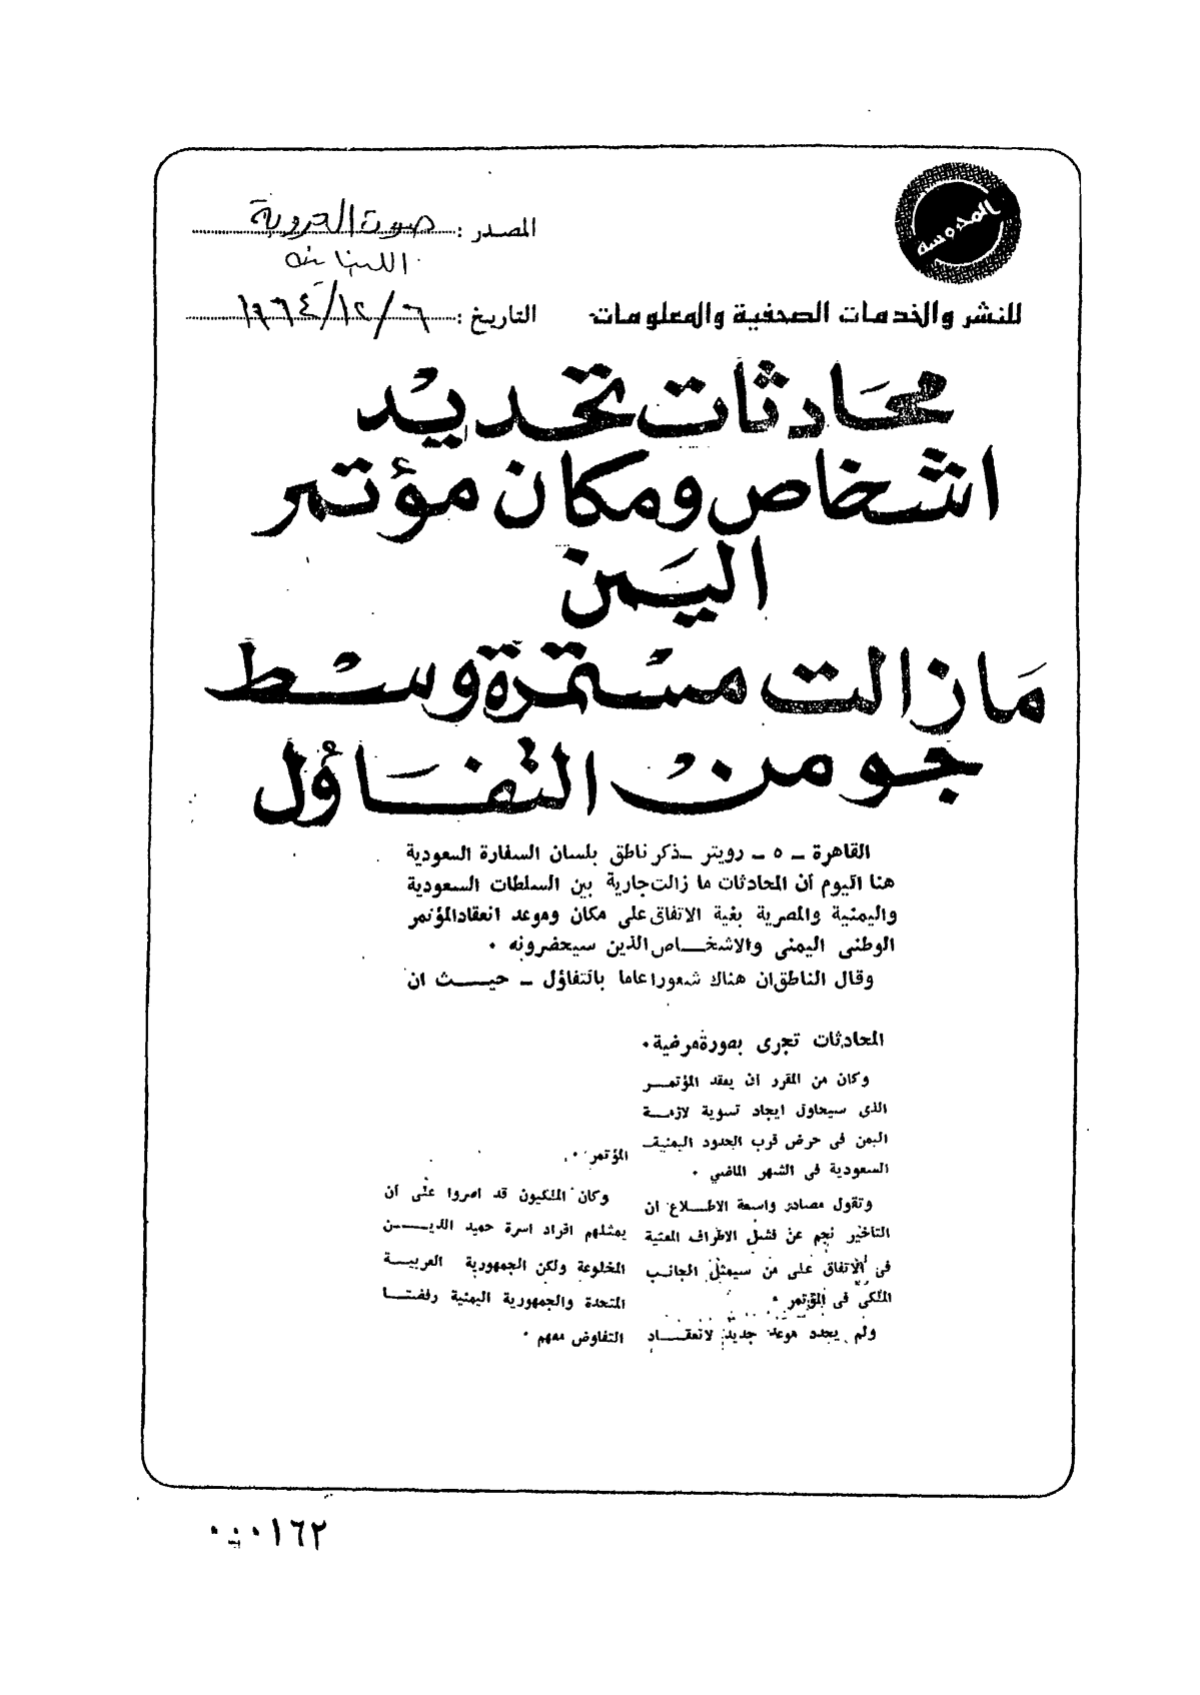 المحروسة
للنشر والخدمات الصحفية والمعلومات
المصدر : صوت العروبة
اللبنانية
التاريخ : ٦/ ١٢/ ١٩٦٤
محادثات تحديد
اشخاص ومكان مؤتمر
اليمن
ما زالت مستمرة وسط
جو من التفاؤل
القاهرة ـ ٥ ـ رويتر ـ ذكر ناطق بلسان السفارة السعودية
هنا اليوم أن المحادثات ما زالت جارية بين السلطات السعودية
واليمنية والمصرية بغية الاتفاق على مكان وموعد انعقاد المؤتمر
الوطنى اليمنى والاشخـــاص الذين سيحضرونه ٠
وقال الناطق ان هناك شعورا عاما بالتفاؤل ـ حيـــث ان
المحادثات تجرى بصورة مرضية ٠
وكان من المقرر ان يعقد المؤتمـــر
الذى سيحاول ايجاد تسوية لازمـــة
اليمن فى حرض قرب الحدود اليمنيةـ
السعودية فى الشهر الماضي ٠
وتقول مصادر واسعة الاطـــلاع ان
التأخير نجم عن فشل الاطراف المعنية
فى الاتفاق على من سيمثل الجانـب
الملكى فى المؤتمر ٠
ولم يحدد موعد جديد لانعقـــاد
المؤتمر ٠
وكان الملكيون قد اصروا على أن
يمثلهم افراد اسرة حميد الديـــن
المخلوعة ولكن الجمهورية العربيـــة
المتحدة والجمهورية اليمنية رفضتـــا
التفاوض معهم ٠
٠٠٠١٦٢